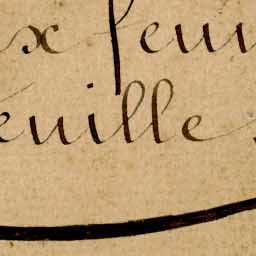 x feui
euille